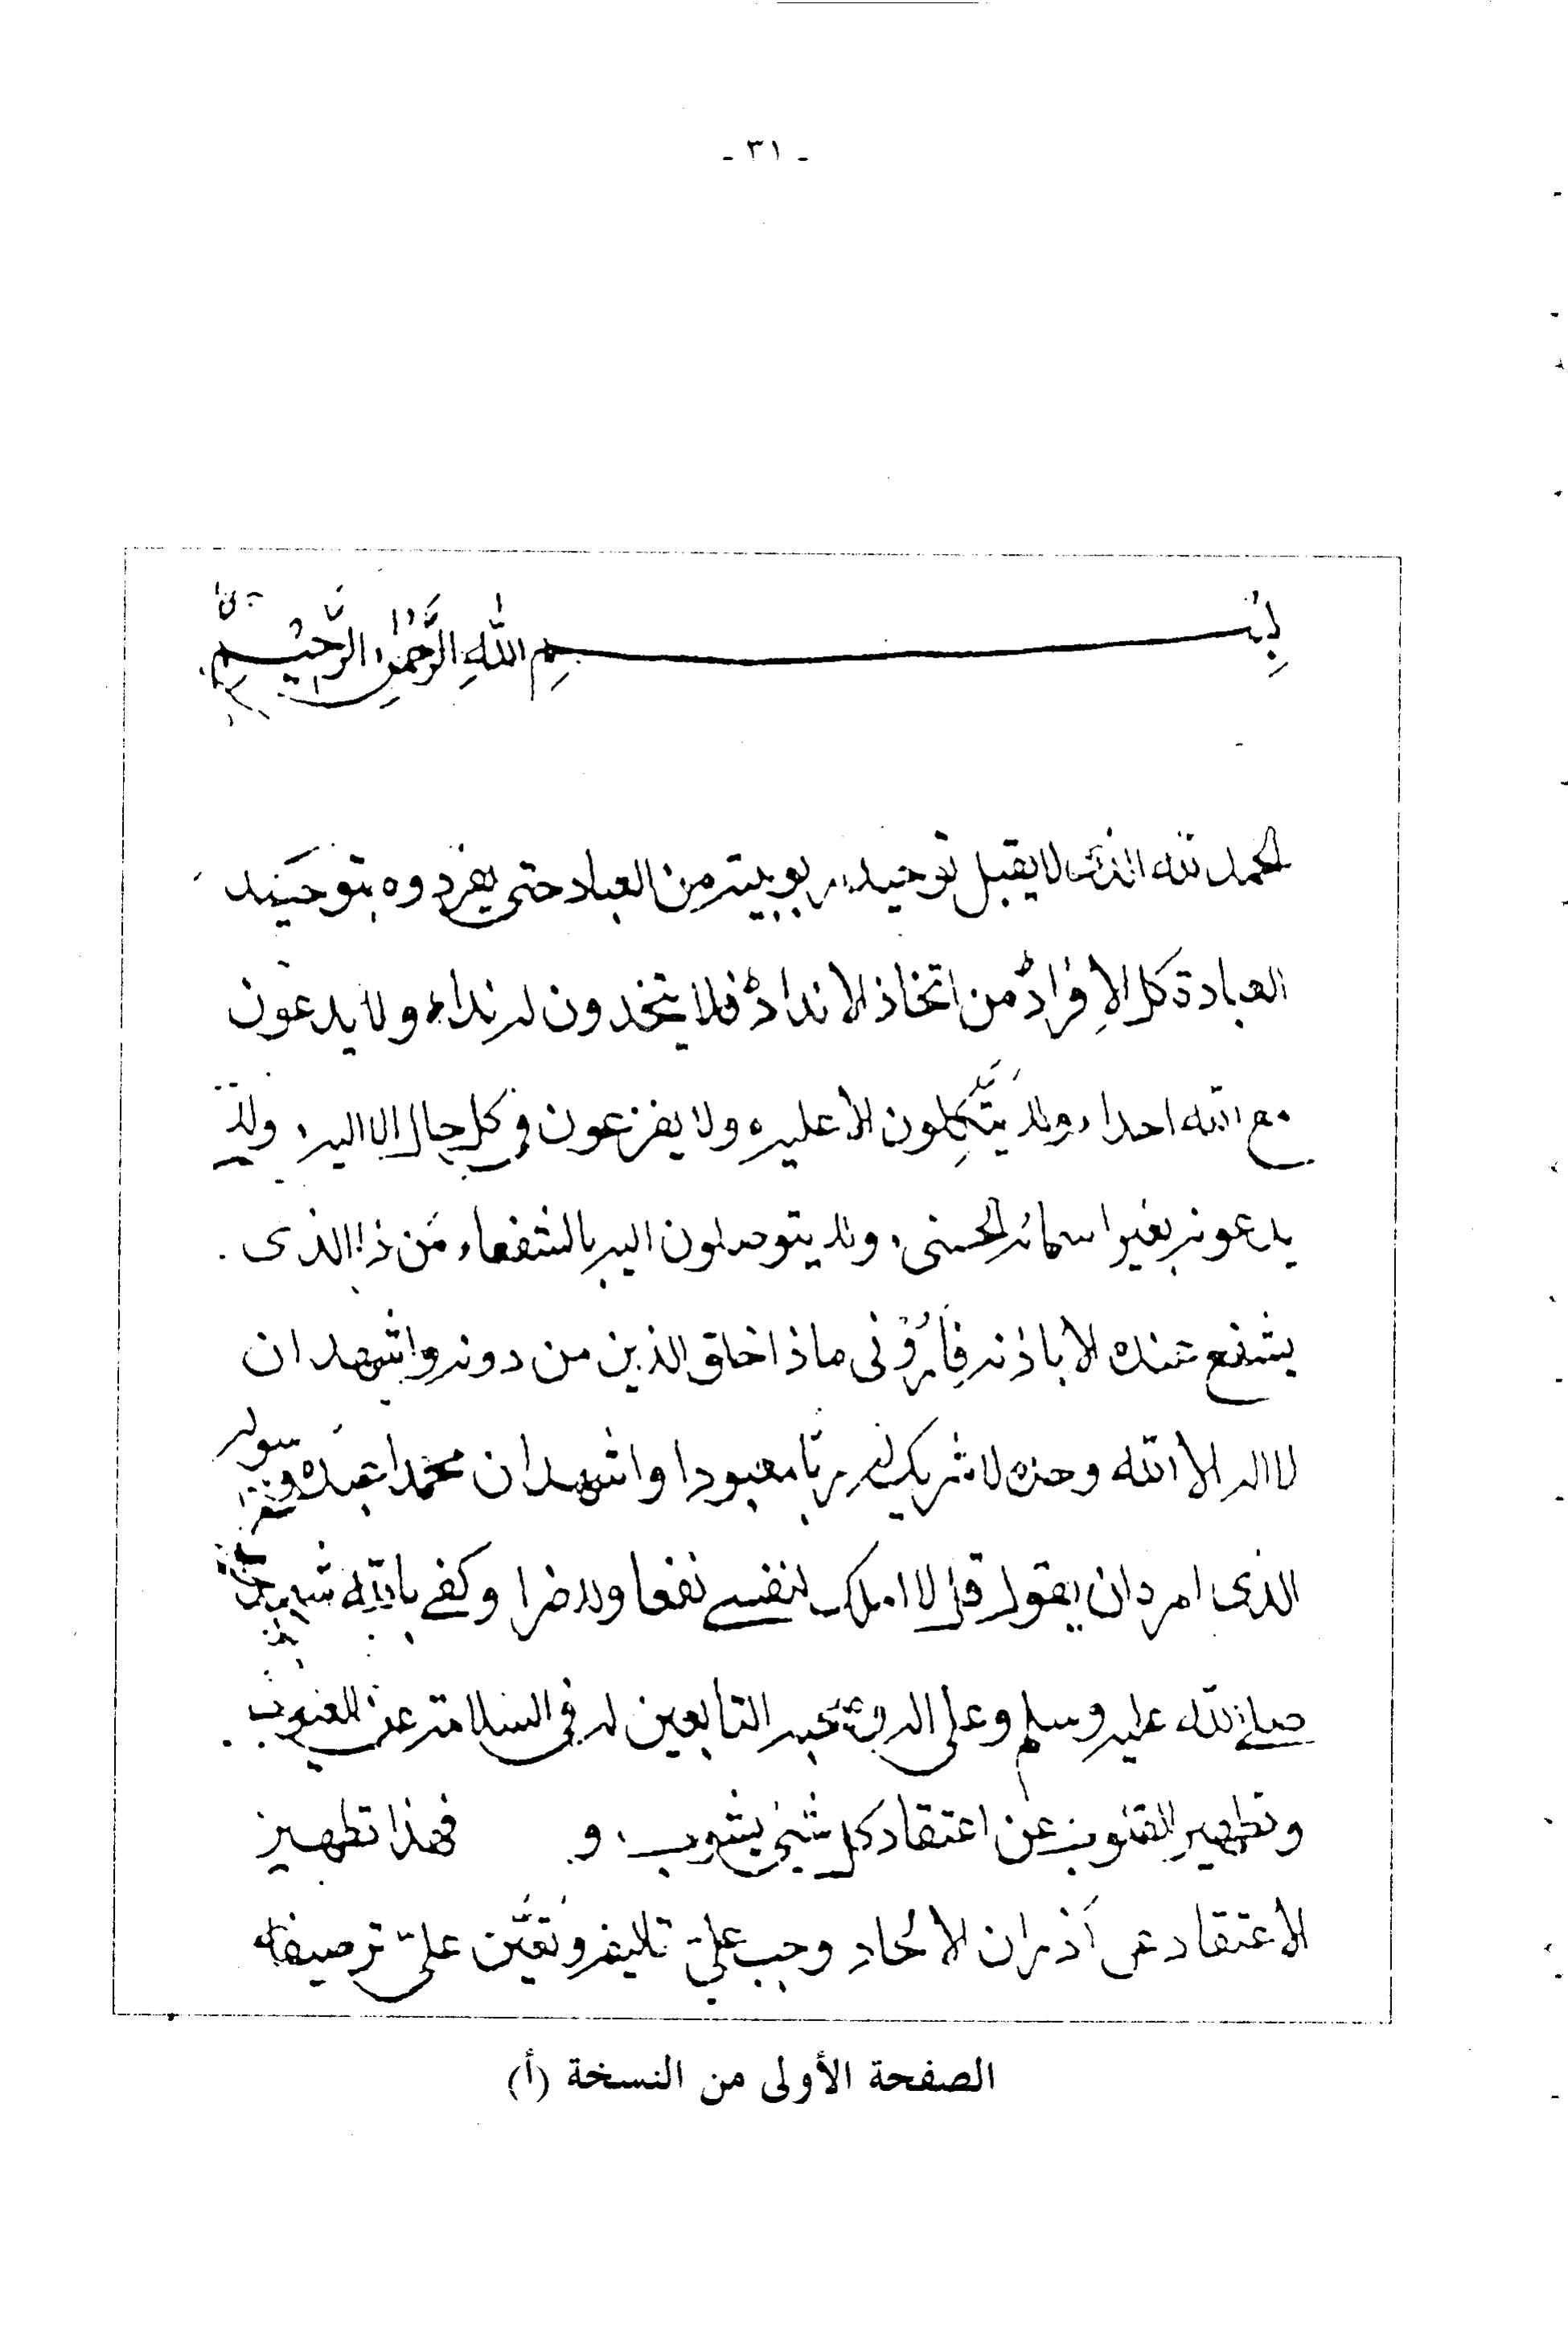 - ٣١ -
بسم الله الرحمن الرحيم
الحمد لله الذي لا يقبل توحيد ربوبيته من العباد حتى يفردوه بتوحيد
العبادة كل الإفراد من اتخاذ الانداد فلا يتخذون له ندا ولا يدعون
مع الله احدا ولا يتكلون الا عليه ولا يفزعون في كل حال الا اليه ولا
يدعونه بغير اسمائه الحسنى ولا يتوصلون اليه بالشفعاء من ذا الذى
يشفع عنده الا باذنه فأروني ماذا خلق الذين من دونه واشهد ان
لا اله الا الله وحده لا شريك له ربا معبودا واشهد ان محمدا عبده ورسوله
الذى امره ان يقول قل لا املك لنفسي نفعا ولا ضرا وكفى بالله شهيدا
صلى الله عليه وسلم وعلى اله وصحبه التابعين له في السلامة من العيوب
وتطهير القلوب عن اعتقاد كل شيئ يشوب و فهذا تطهير
الاعتقاد عن أدران الالحاد وجب عليّ تاليفه وتعيّن عليّ ترصيفه
الصفحة الأولى من النسخة (أ)